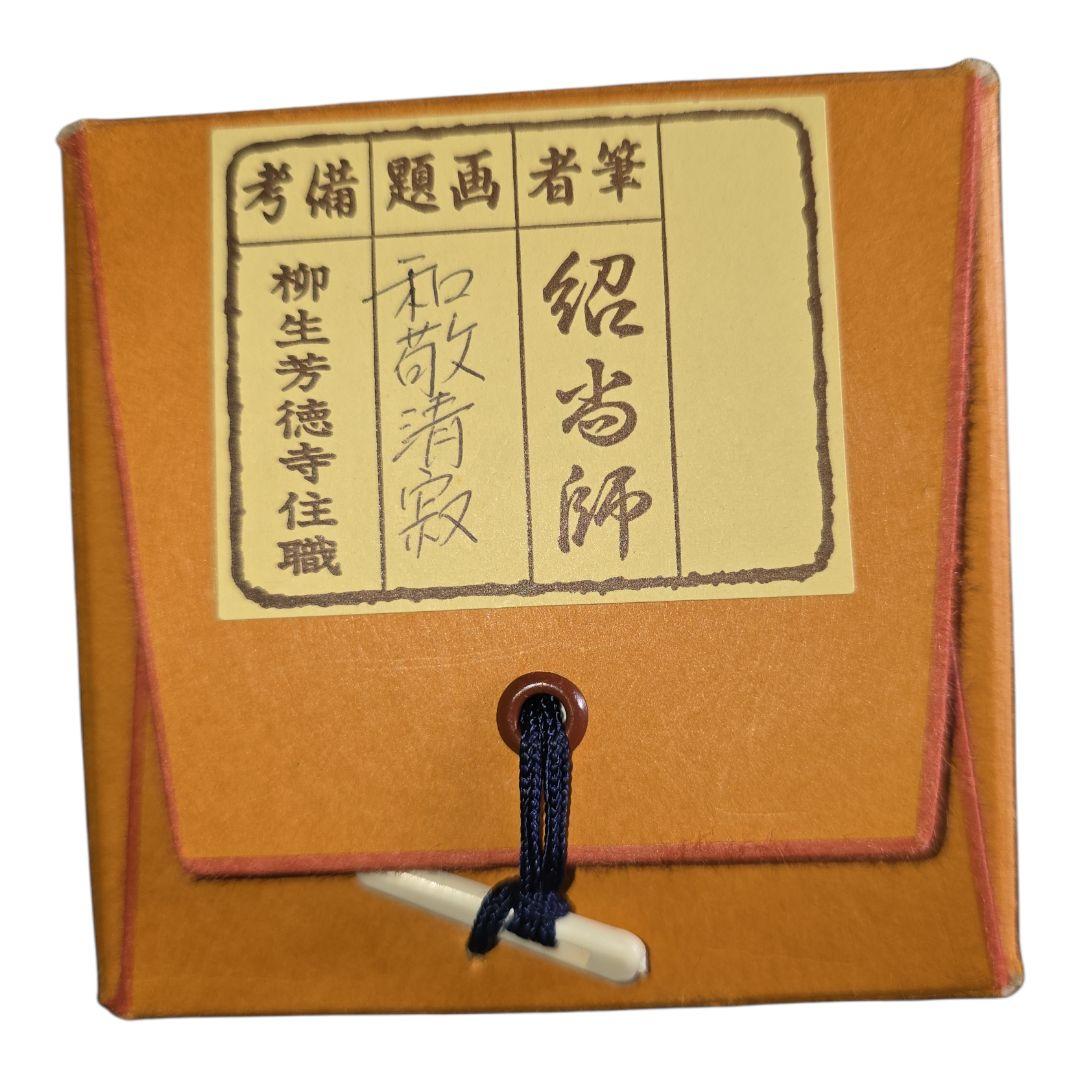 筆者
紹尚師
画題
和敬清寂
備考
柳生芳徳寺住職